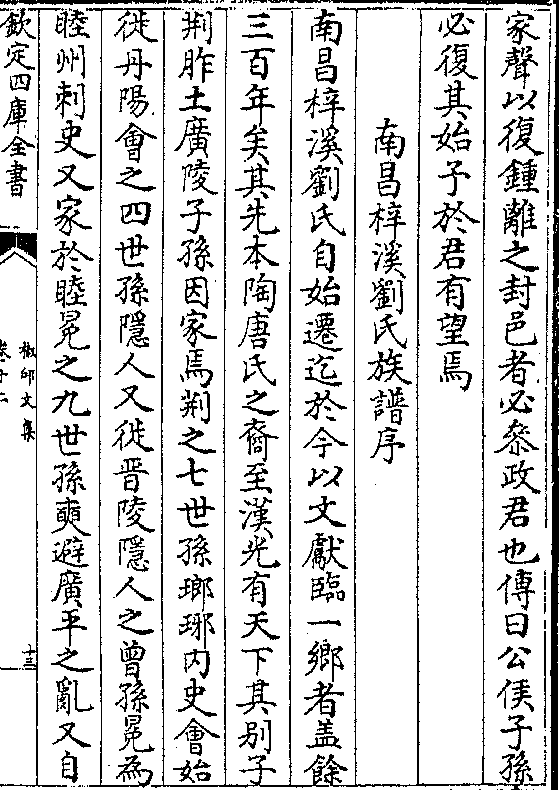 家聲以復鍾離之封邑者必叅政君也傳曰公侯子孫
必復其始予於君有望焉
南昌梓溪劉氏族譜序
南昌梓溪劉氏自始遷迄於今以文獻臨一鄉者盖餘
三百年矣其先本陶唐氏之裔至漢光有天下其别子
荆胙土廣陵子孫因家焉荆之七世孫瑯琊内史會始
徙丹陽會之四世孫隱人又徙晋陵隱人之曾孫冕為
睦州刺史又家於睦冕之九世孫奭避廣平之亂又自
欽定四庫全書
椒邱文集
卷十二
十三